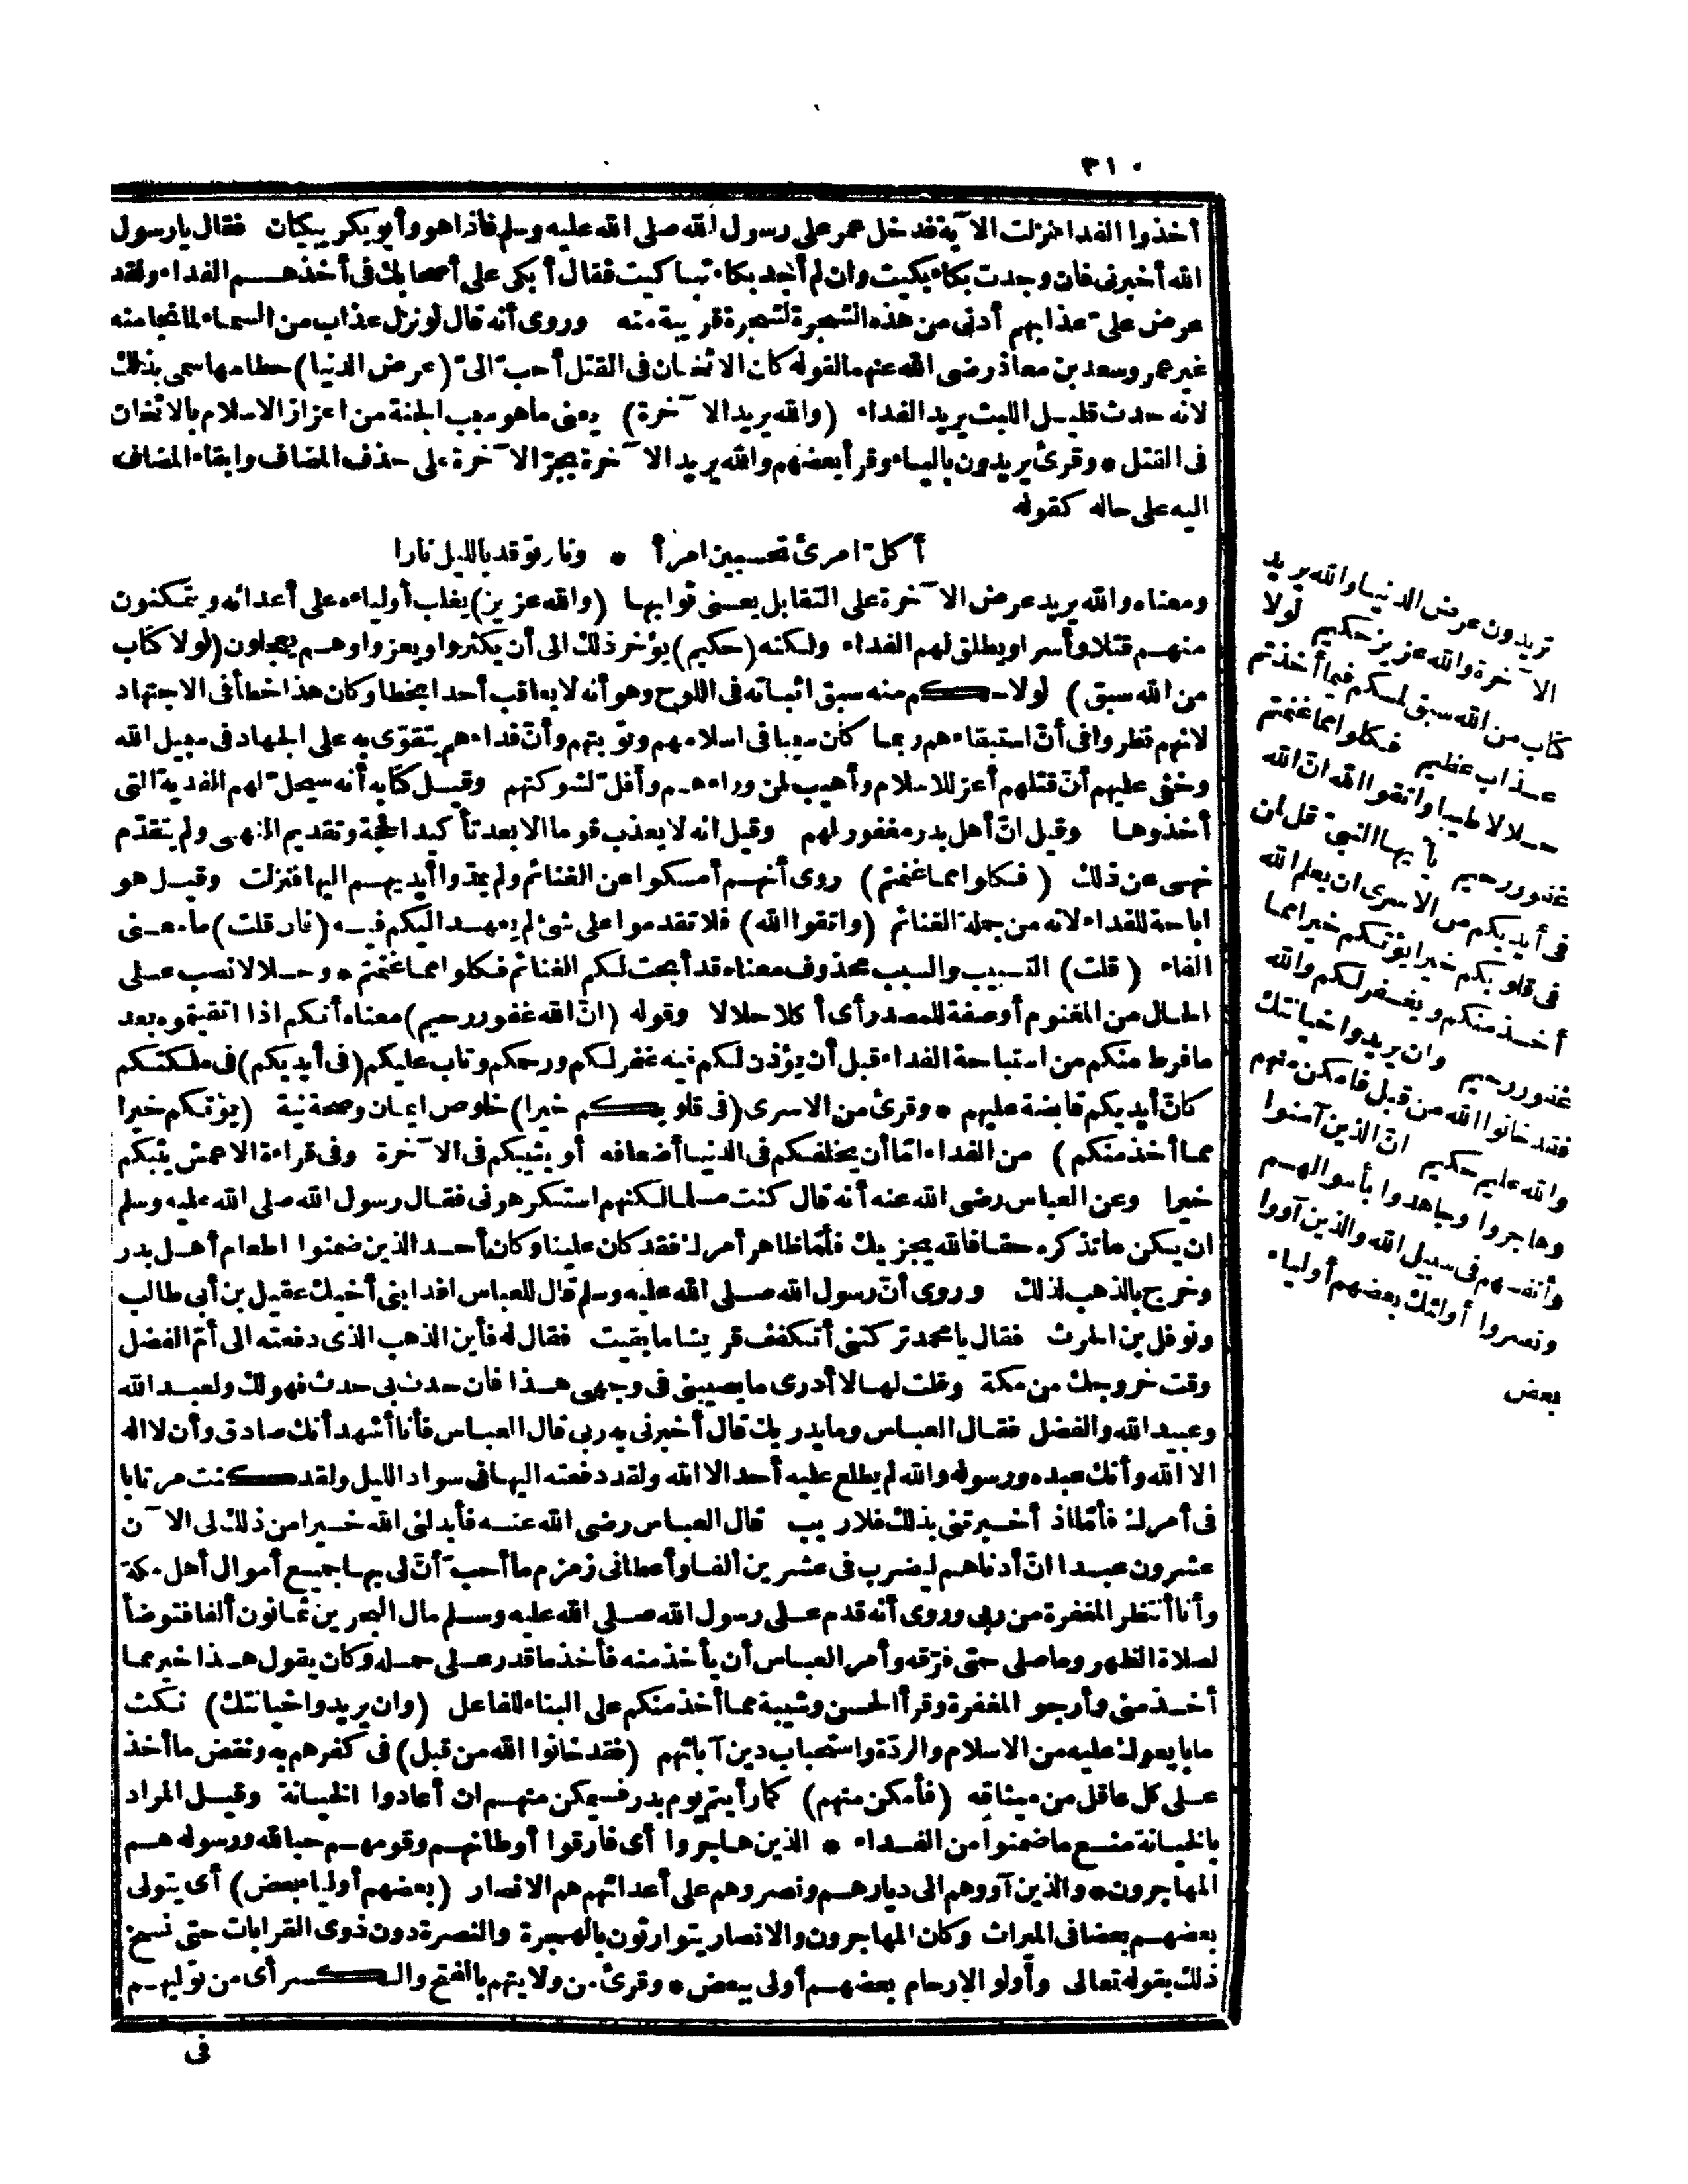 ٣١٠
أخذوا الفداء فنزلت الآية فدخل عمر على رسول الله صلى الله عليه وسلم فاذا هو وأبو بكر يبكيان فقال يا رسول
الله أخبرنى فان وجدت بكاء بكيت وان لم أجد بكاء تباكيت فقال أبكى على أصحابك فى أخذهم الفداء ولقد
عرض علىّ عذابهم أدنى من هذه الشجرة لشجرة قريبة منه وروى أنه قال لو نزل عذاب من السماء لما نجا منه
غير عمر وسعد بن معاذ رضى الله عنهما لقوله كان الاثخان فى القتل أحبّ الىّ (عرض الدنيا) حطامها سمى بذلك
لانه حدث قليل اللبث يريد الفداء (والله يريد الآخرة) يعنى ما هو سبب الجنة من اعزاز الاسلام بالاثخان
فى القتل * وقرئ يريدون بالياء وقرأ بعضهم والله يريد الآخرة بجرّ الآخرة على حذف المضاف وابقاء المضاف
اليه على حاله كقوله
أكلّ امرئ تحسبين امرأ * ونار توقد بالليل نارا
ومعناه والله يريد عرض الآخرة على التقابل يعنى ثوابها (والله عزيز) يغلب أولياءه على أعدائه ويتمكنون
منهم قتلا وأسرا ويطلق لهم الفداء ولكنه (حكيم) يؤخر ذلك الى أن يكثروا ويعزوا وهم يعجلون (لولا كتاب
من الله سبق) لولا حكم منه سبق اثباته فى اللوح وهو أنه لا يعاقب أحد ابخطا وكان هذا خطأ فى الاجتهاد
لانهم نظروا فى أنّ استبقاءهم ربما كان سببا فى اسلامهم وتوبتهم وأنّ فداءهم يتقوّى به على الجهاد فى سبيل الله
وخفى عليهم أنّ قتلهم أعز للاسلام وأهيب لمن وراءهم وأفلّ لشوكتهم وقيل كتابه أنه سيحلّ لهم الفدية التى
أخذوها وقيل انّ أهل بدر مغفور لهم وقيل انه لا يعذب قوما الا بعد تأكيد الحجة وتقديم النهى ولم يتقدّم
نهى عن ذلك (فكلوا مما غنمتم) روى أنهم أمسكوا عن الغنائم ولم يمدّوا أيديهم اليها فنزلت وقيل هو
اباحة للفداء لانه من جملة الغنائم (واتقوا الله) فلا تقدموا على شئ لم يعهد اليكم فيه (فان قلت) ما معنى
الفاء (قلت) التسبيب والسبب محذوف معناه قد أبحت لكم الغنائم فكلوا مما غنمتم * وحلالا نصب على
الحال من المغنوم أو صفة للمصدر أى أكلا حلالا وقوله (انّ الله غفور رحيم) معناه أنكم اذا اتقيتموه بعد
ما فرط منكم من استباحة الفداء قبل أن يؤذن لكم فيه غفر لكم ورحمكم وتاب عليكم (فى أيديكم) فى ملكتكم
كانّ أيديكم قابضة عليهم * وقرئ من الاسرى (فى قلوبكم خيرا) خلوص ايمان وصحة نية (يؤتكم خيرا
مما أخذ منكم) من الفداء امّا أن يخلفكم فى الدنيا أضعافه أو يثيبكم فى الآخرة وفى قراءة الاعمش يثبكم
خيرا وعن العباس رضى الله عنه أنه قال كنت مسلما لكنهم استكرهونى فقال رسول الله صلى الله عليه وسلم
ان يكن ما تذكره حقا فالله يجزيك فأمّا ظاهر أمرك فقد كان علينا وكان أحد الذين ضمنوا اطعام أهل بدر
وخرج بالذهب لذلك وروى أنّ رسول الله صلى الله عليه وسلم قال للعباس افد ابنى أخيك عقيل بن أبى طالب
ونوفل بن الحرث فقال يا محمد تركتنى أتكفف قريشا ما بقيت فقال له فأين الذهب الذى دفعته الى أمّ الفضل
وقت خروجك من مكة وقلت لها لا أدرى ما يصيبنى فى وجهى هذا فان حدث بى حدث فهو لك ولعبد الله
وعبيد الله والفضل فقال العباس وما يدريك قال أخبرنى به ربى قال العباس فأنا أشهد أنك صادق وأن لا اله
الا الله وأنك عبده ورسوله والله لم يطلع عليه أحد الا الله ولقد دفعته اليها فى سواد الليل ولقد كنت مرتابا
فى أمرك فأمّا اذ أخبرتنى بذلك فلا ريب قال العباس رضى الله عنه فأبدلنى الله خيرا من ذلك لى الآن
عشرون عبدا انّ أدناهم ليضرب فى عشرين ألفا وأعطانى زمزم ما أحبّ أنّ لى بها جميع أموال أهل مكة
وأنا أنتظر المغفرة من ربى وروى أنه قدم على رسول الله صلى الله عليه وسلم مال البحرين ثمانون ألفا فتوضأ
لصلاة الظهر وما صلى حتى فرّقه وأمر العباس أن يأخذ منه فأخذ ما قدر على حمله وكان يقول هذا خير مما
أخذ منى وأرجو المغفرة وقرأ الحسن وشيبة مما أخذ منكم على البناء للفاعل (وان يريدوا خيانتك) نكث
ما بايعوك عليه من الاسلام والردّة واستحباب دين آبائهم (فقد خانوا الله من قبل) فى كفرهم به ونقض ما أخذ
على كل عاقل من ميثاقه (فأمكن منهم) كما رأيتم يوم بدر فسيمكن منهم ان أعادوا الخيانة وقيل المراد
بالخيانة منع ما ضمنوا من الفداء * الذين هاجروا أى فارقوا أوطانهم وقومهم حبا لله ورسوله هم
المهاجرون * والذين آووهم الى ديارهم ونصروهم على أعدائهم هم الانصار (بعضهم أولياء بعض) أى يتولى
بعضهم بعضا فى الميراث وكان المهاجرون والانصار يتوارثون بالهجرة والنصرة دون ذوى القرابات حتى نسخ
ذلك بقوله تعالى وأولو الارحام بعضهم أولى ببعض * وقرئ من ولايتهم بالفتح والكسر أى من توليهم
فى
تريدون عرض الدنيا والله يريد
الآخرة والله عزيز حكيم لولا
كتاب من الله سبق لمسكم فيما أخذتم
عذاب عظيم فكلوا مما غنمتم
حلالا طيبا واتقوا الله انّ الله
غفور رحيم يأيها النبىّ قل لمن
فى أيديكم من الاسرى ان يعلم الله
فى قلوبكم خيرا يؤتكم خيرا مما
أخذ منكم ويغفر لكم والله
غفور رحيم وان يريدوا خيانتك
فقد خانوا الله من قبل فأمكن منهم
والله عليم حكيم انّ الذين آمنوا
وهاجروا وجاهدوا بأموالهم
وأنفسهم فى سبيل الله والذين آووا
ونصروا أولئك بعضهم أولياء
بعض